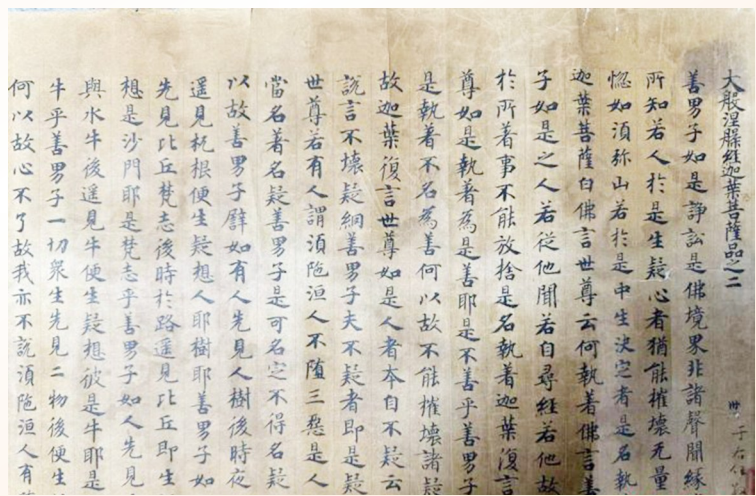 大般涅槃經迦葉菩薩品之二
善男子如是諍訟是佛境界非諸聲聞緣
所知若人於是生疑心者猶能摧壞无量
惚如湏弥山若於是中生決定者是名執
迦葉菩薩白佛言世尊云何執著佛言善
子如是之人若從他聞若自尋經若他故
於所著事不能放捨是名執著迦葉復言
尊如是執著為是善耶是不善乎善男子
是執著不名為善何以故不能摧壞諸疑
故迦葉復言世尊如是人者本自不疑云
說言不壞疑網善男子夫不疑者即是疑
世尊若有人謂湏陁洹人不墮三惡是人
當名著名疑善男子是可名定不得名疑
以故善男子譬如有人先見人樹後時夜
遥見杌根便生疑想人耶樹耶善男子如
先見比丘梵志後時於路遥見比丘即生
想是沙門耶是梵志乎善男子如人先見
與水牛後遥見牛便生疑想彼是牛耶是
牛乎善男子一切衆生先見二物後便生
何以故心不了故我亦不說湏陁洹人有